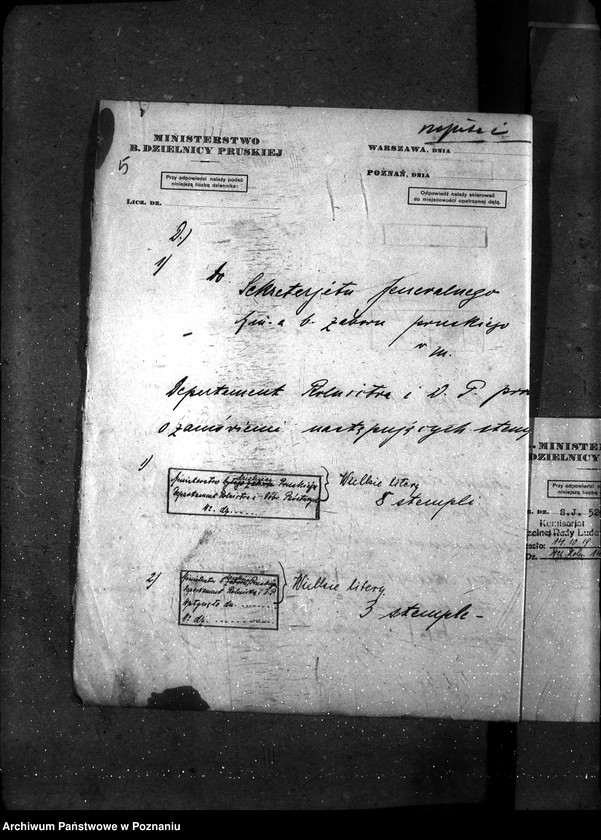 napisać
MINISTERSTWO
B. DZIELNICY PRUSKIEJ
WARSZAWA, DNIA
5
POZNAŃ, DNIA
Przy odpowiedzi należy podać
niniejszą liczbę dziennika:
Odpowiedź należy skierować
do miejscowości opatrzonej datą.
LICZ. DZ.
D.)
1/
do
Sekretarjatu Jeneralnego
Min. a b. zaboru pruskiego
w m.
Departament Rolnictwa i D. P. pro
o zamówienie następujących stemp
1)
Ministerstwo Pruskiej
Departament Rolnictwa i Dóbr Państwowych
Nr. dz.
Wielkie litery
8 stempli
2)
Ministerstwo
Departament Rolnictwa i D.P.
Wpłynęło dn.
Nr. dz.
Wielkie litery
3 stemple-
MINISTER
DZIELNICY
Przy odpowiedzi
niniejszą liczbę
. DZ. S.J. 52
Komisarjat
zelnej Rady Ludo
eszło: 14.10.19
Archiwum Państwowe w Poznaniu